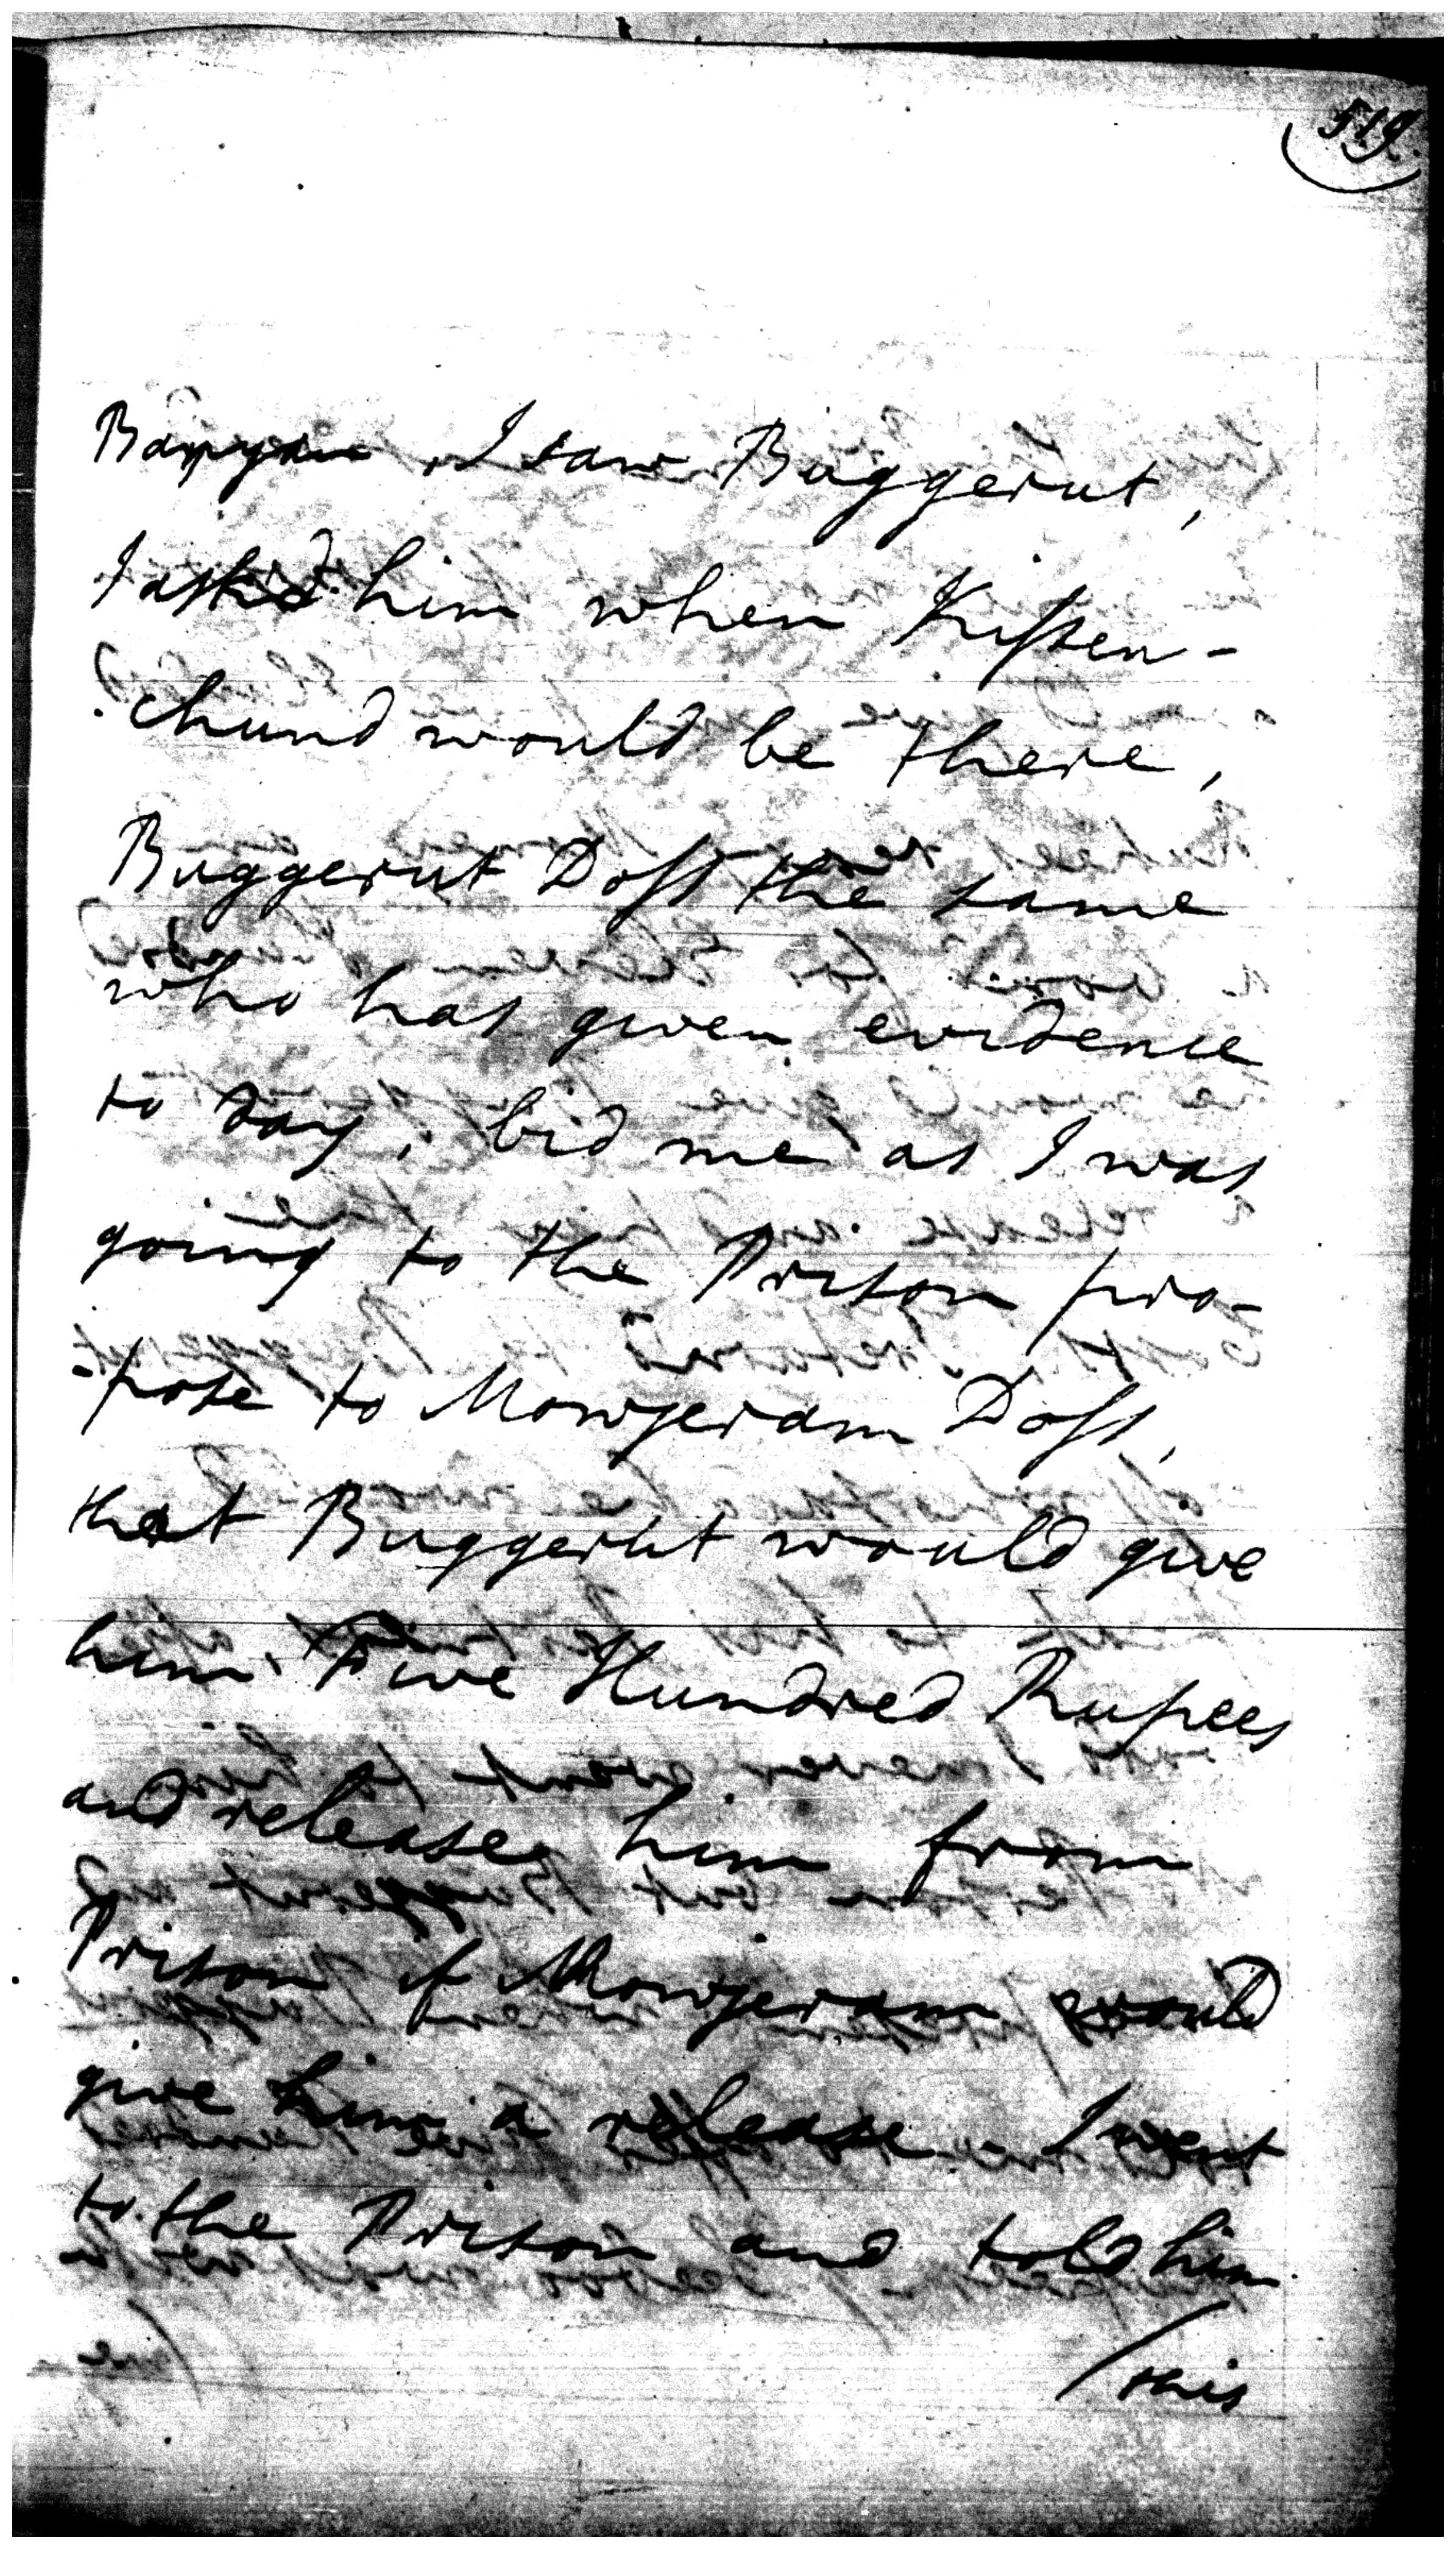 519.
Banyan, I saw Buggerut,
I asked him when Kissen-
-chund would be there,
Buggerut Doss the same
who has given evidence
to day, bid me as I was
going to the Prison pro-
-pose to Mowjeram Doss,
that Buggerut would give
him Five Hundred Rupees
and release him from
Prison if Mowjeram would
give him a release. I went
to the Prison and told him
/this